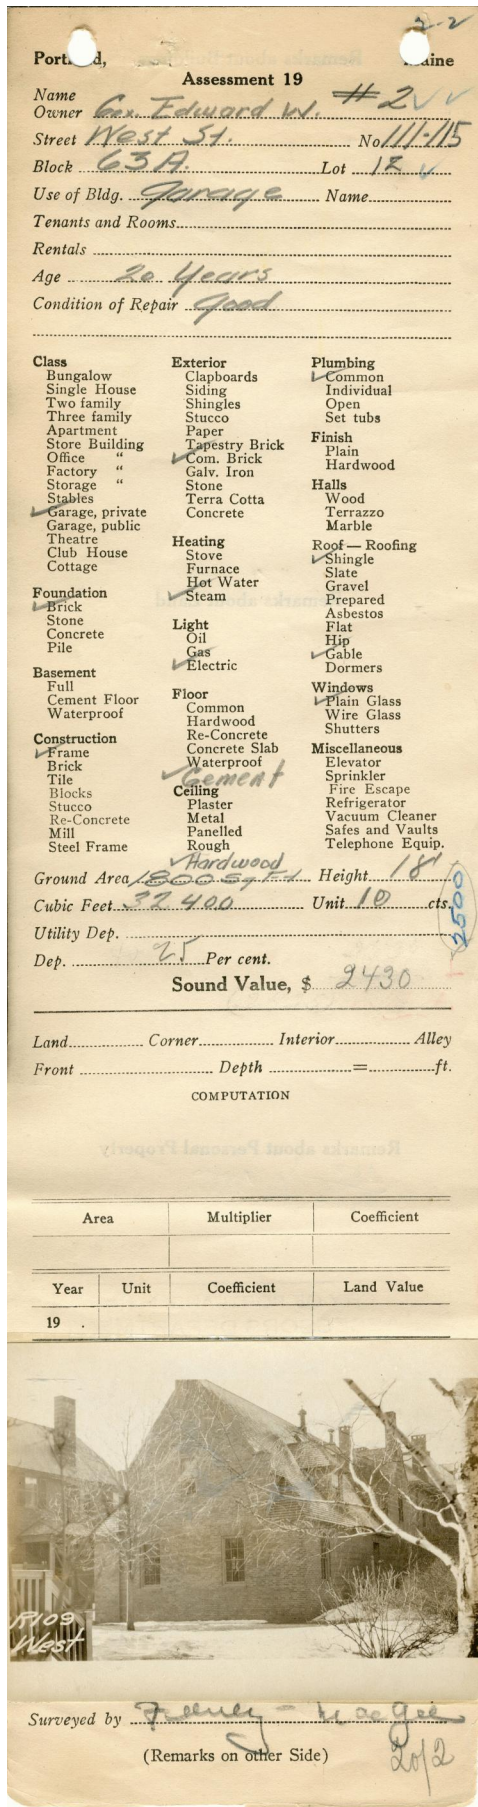 2-2
Portland, Maine
Assessment 19
Name
Owner Cox. Edward W. #2
Street West St. No 111-115
Block 63A. Lot 12
Use of Bldg. Garage Name
Tenants and Rooms
Rentals
Age 20 Years
Condition of Repair Good
Class
Bungalow
Single House
Two family
Three family
Apartment
Store Building
Office "
Factory "
Storage "
Stables
✓ Garage, private
Garage, public
Theatre
Club House
Cottage
Foundation
✓ Brick
Stone
Concrete
Pile
Basement
Full
Cement Floor
Waterproof
Construction
✓ Frame
Brick
Tile
Blocks
Stucco
Re-Concrete
Mill
Steel Frame
Exterior
Clapboards
Siding
Shingles
Stucco
Paper
Tapestry Brick
✓ Com. Brick
Galv. Iron
Stone
Terra Cotta
Concrete
Heating
Stove
Furnace
Hot Water
✓ Steam
Light
Oil
Gas
✓ Electric
Floor
Common
Hardwood
Re-Concrete
Concrete Slab
Waterproof
✓ Cement
Ceiling
Plaster
Metal
Panelled
Rough
✓ Hardwood
Plumbing
✓ Common
Individual
Open
Set tubs
Finish
Plain
Hardwood
Halls
Wood
Terrazzo
Marble
Roof — Roofing
✓ Shingle
Slate
Gravel
Prepared
Asbestos
Flat
Hip
✓ Gable
Dormers
Windows
✓ Plain Glass
Wire Glass
Shutters
Miscellaneous
Elevator
Sprinkler
Fire Escape
Refrigerator
Vacuum Cleaner
Safes and Vaults
Telephone Equip.
Ground Area 1800 Sq Ft Height 18'
Cubic Feet 32400 Unit 10 cts.
2500
Utility Dep.
Dep. 25 Per cent.
Sound Value, $ 2430
Land Corner Interior Alley
Front Depth = ft.
COMPUTATION
Area Multiplier Coefficient
Year Unit Coefficient Land Value
19 .
R109
West
Surveyed by Feeney - MacGee
(Remarks on other Side)